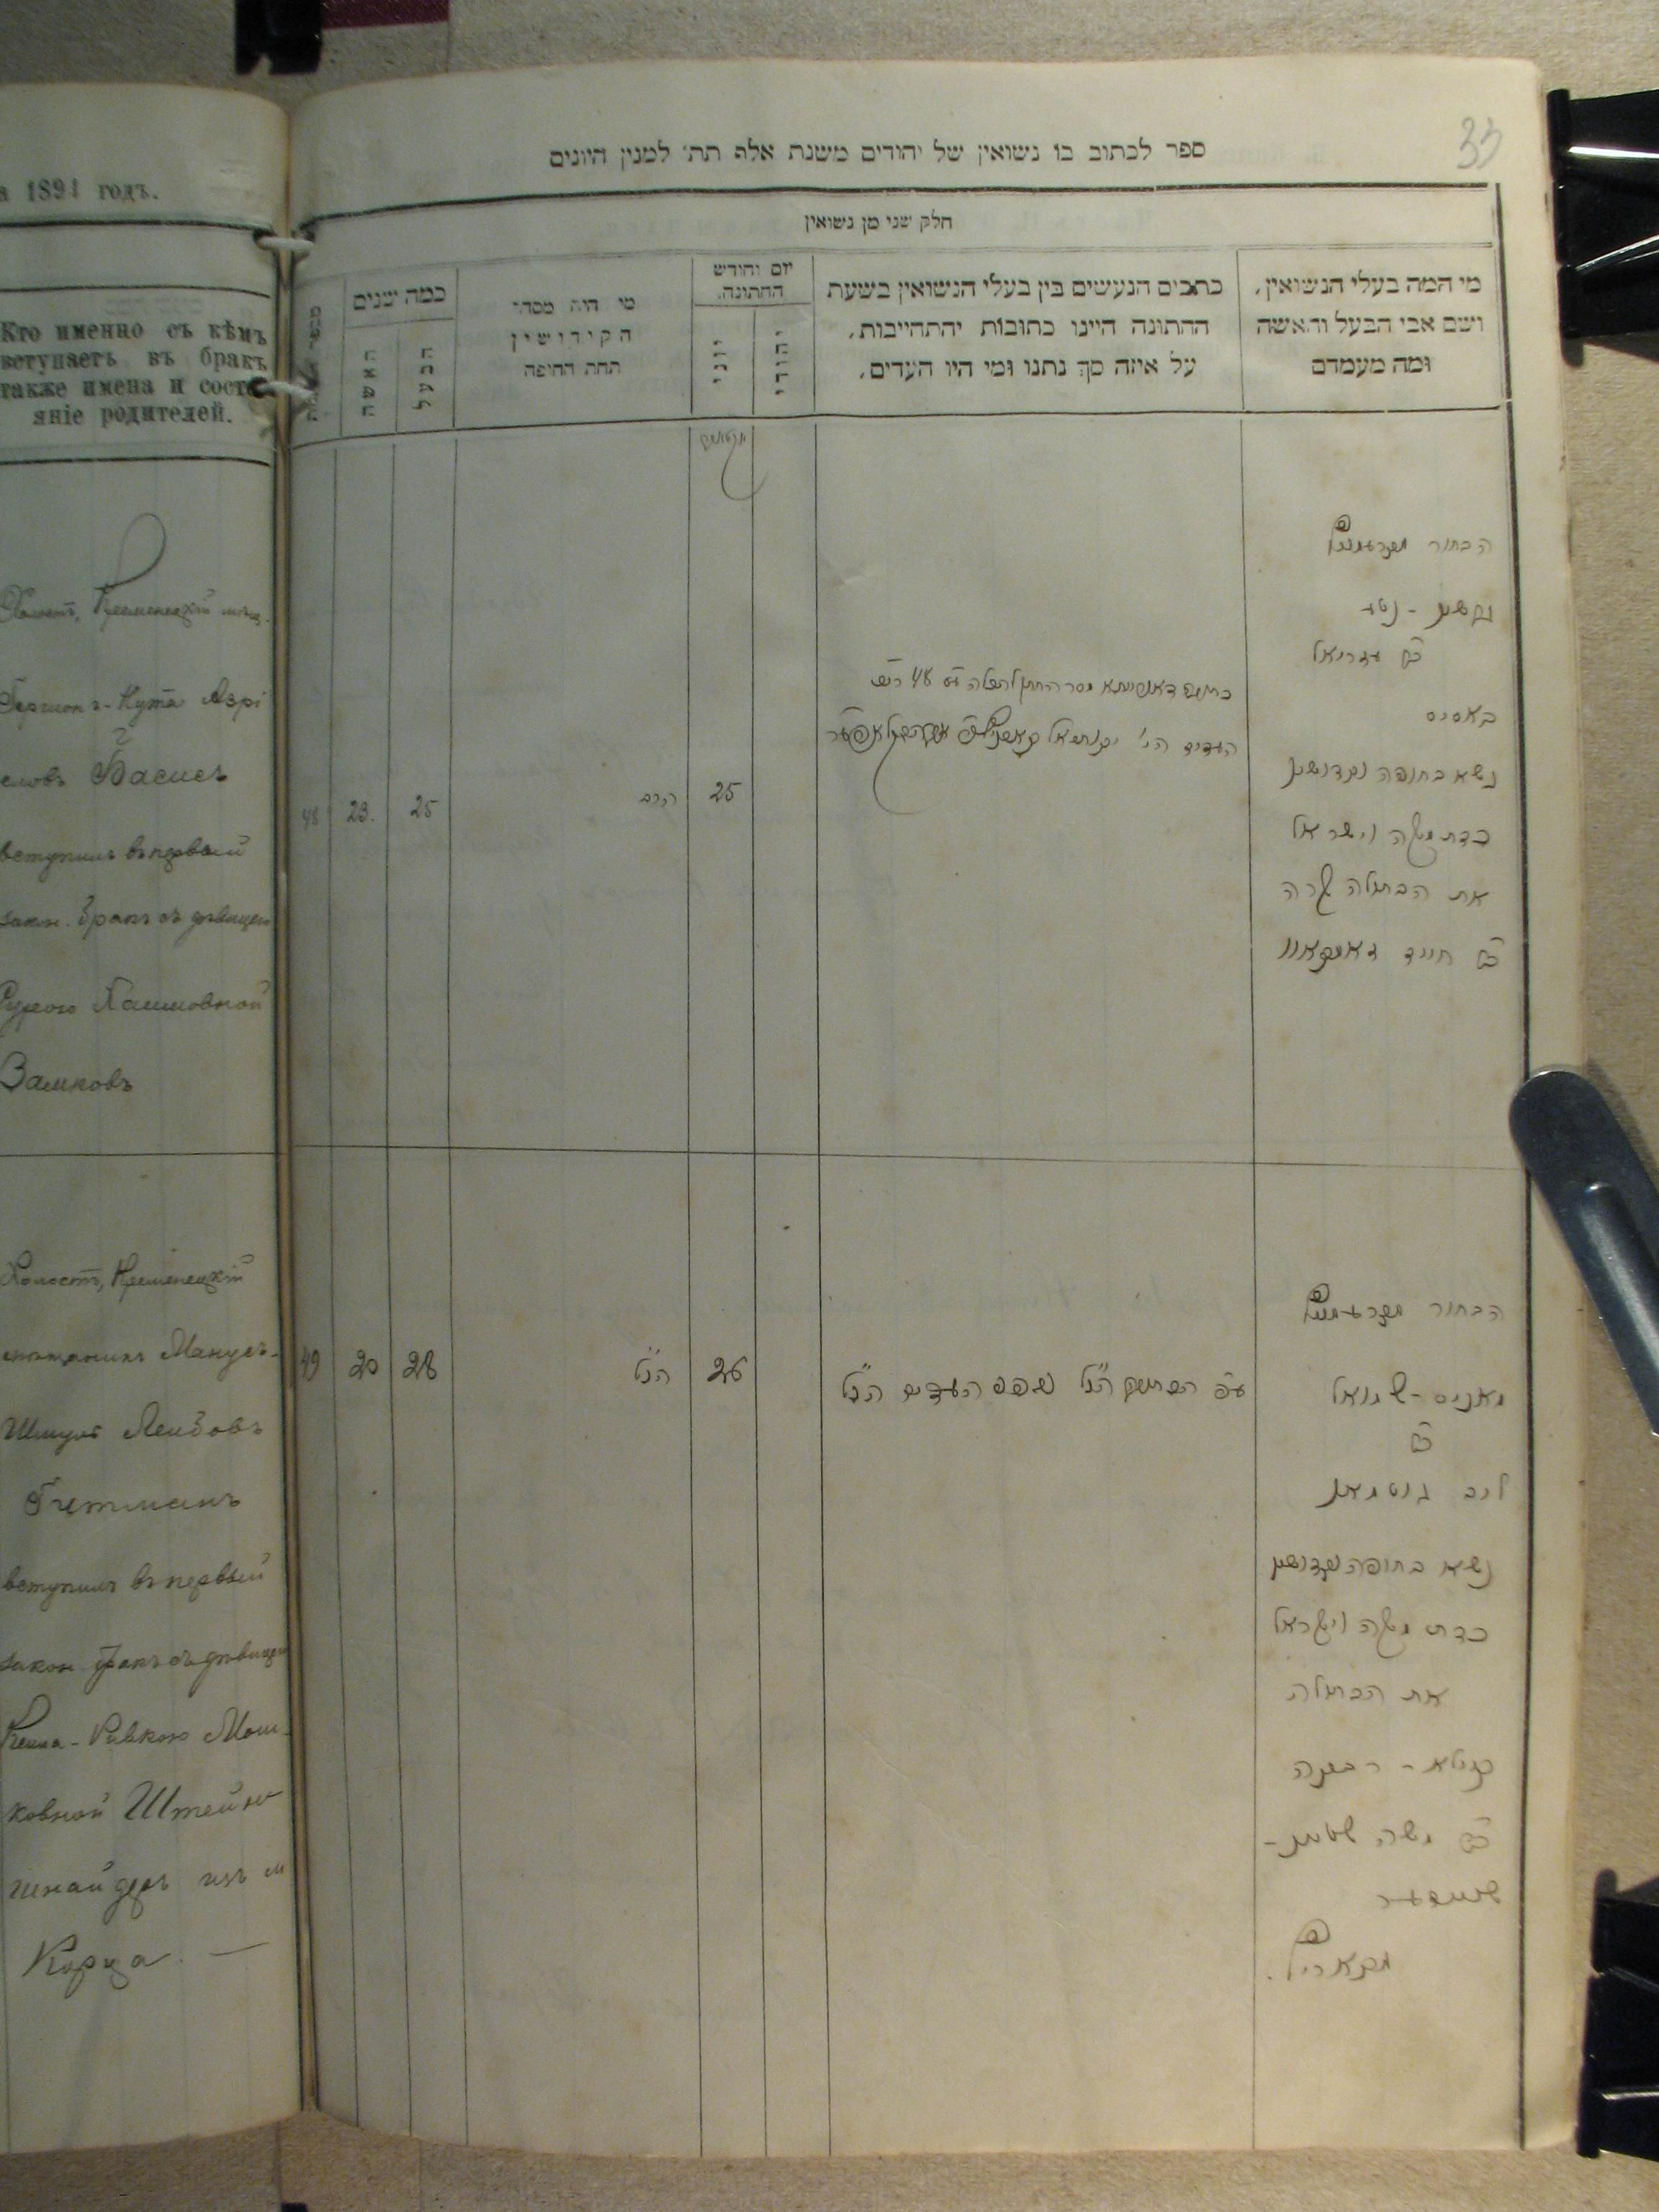 я 1891 годъ.
Кто именно съ кѣмъ
вступаетъ въ бракъ
также имена и состо
яніе родителей.
Холостъ, Кременецкій мѣщ.
Гершонъ-Нута Азрі
еловъ Басисъ
вступилъ въ первый
закон. бракъ съ дѣвицею
Сурою Хаимовной
Замковъ
Холостъ, Кременецкій
мѣщанинъ Манусъ-
Шмуль Лейбовъ
Гитманъ
вступилъ въ первый
закон бракъ съ дѣвицею
Ривкою Мош-
ковной Штейн
шнайдеръ изъ м
Корца. —
33
ספר לכתוב בו נשואין של יהודים משנת אלף תת׳ למנין היונים
חלק שני מן נשואין
מי המה בעלי הנשואין,
ושם אבי הבעל והאשה
ומה מעמדם
כתבים הנעשים בין בעלי הנשואין בשעת
החתונה היינו כתובות יהתחייבות,
על איזה סך נתנו ומי היו העדים,
יום וחודש
החתונה.
יהודי
יוני
מי היה מסדר
הקידושין
תחת החיפה
כמה שנים
הבעל
האשה
הבחור
גרשון - נטע
עזריאל
באסיס
נשא בחופה וקדושין
כדת משה וישראל
את הבתולה שרה
חיים זאמקאוו
העדים הי׳
25
הרב
25
23.
48
הבחור
מאניס - שמואל
ליב גוטמאן
נשא בחופה וקדושין
כדת משה וישראל
את הבתולה
רבקה
משה שטיין -
שניידער
מקאריץ.
הנ"ל העדים הנ"ל
26
הנ"ל
28
20
49